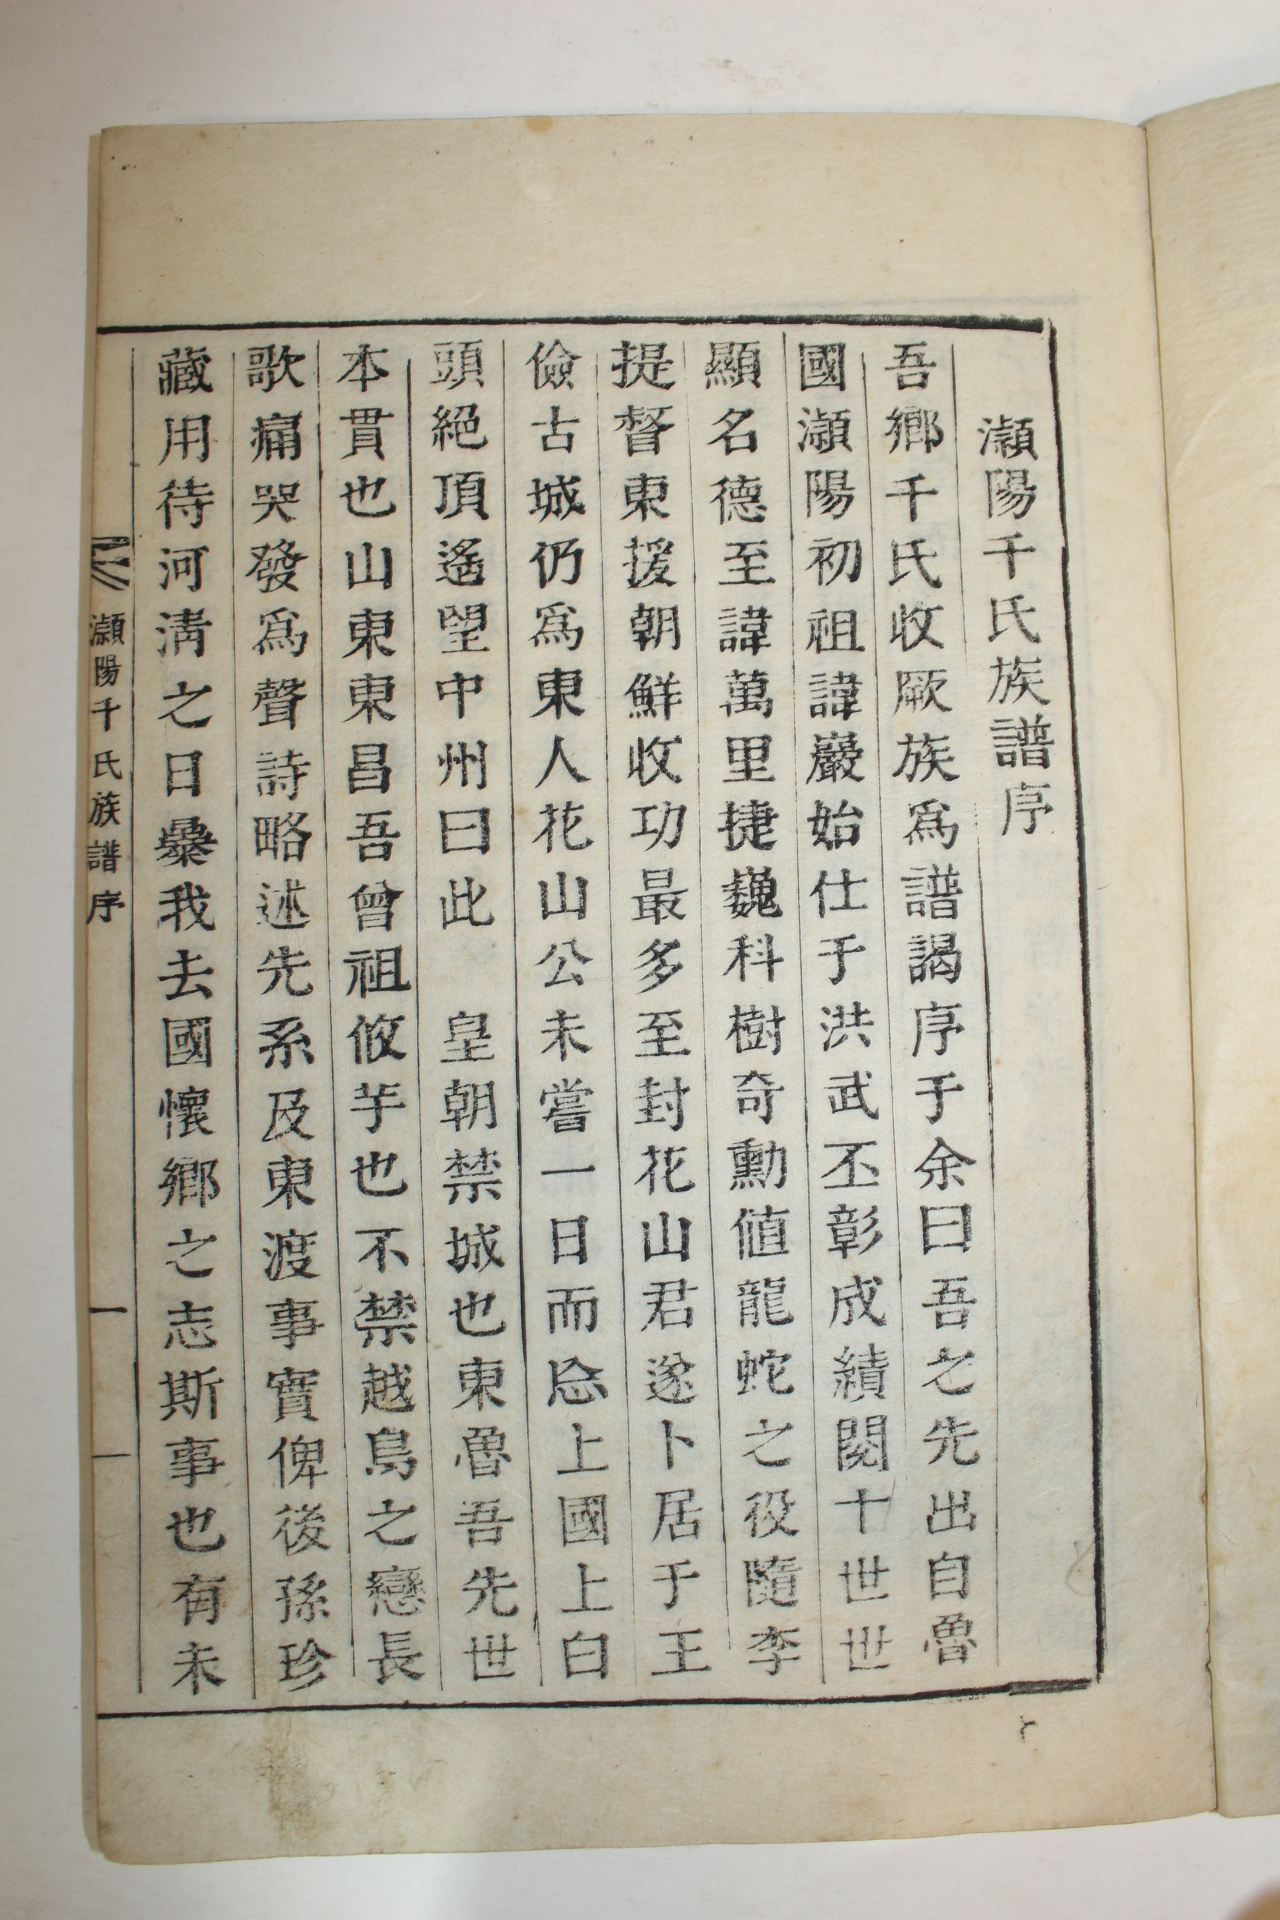 瀬陽千氏族譜序
吾鄉千氏收厥族爲譜謁序于余曰吾之先出自魯
國瀬陽初祖諱巖始仕于洪武丕彰成績閱十世世
顯名德至諱萬里捷巍科樹奇勳値龍蛇之役隨李
提督東援朝鮮收功最多至封花山君遂卜居于王
儉古城仍爲東人花山公未嘗一日而忘上國上白
頭絕頂遙望中州曰此 皇朝禁城也東魯吾先世
本貫也山東東昌吾曾祖攸芋也不禁越鳥之戀長
歌痛哭發爲聲詩略述先系及東渡事實俾後孫珍
藏用待河淸之日暴我去國懷鄉之志斯事也有未
瀬陽千氏族譜序
一